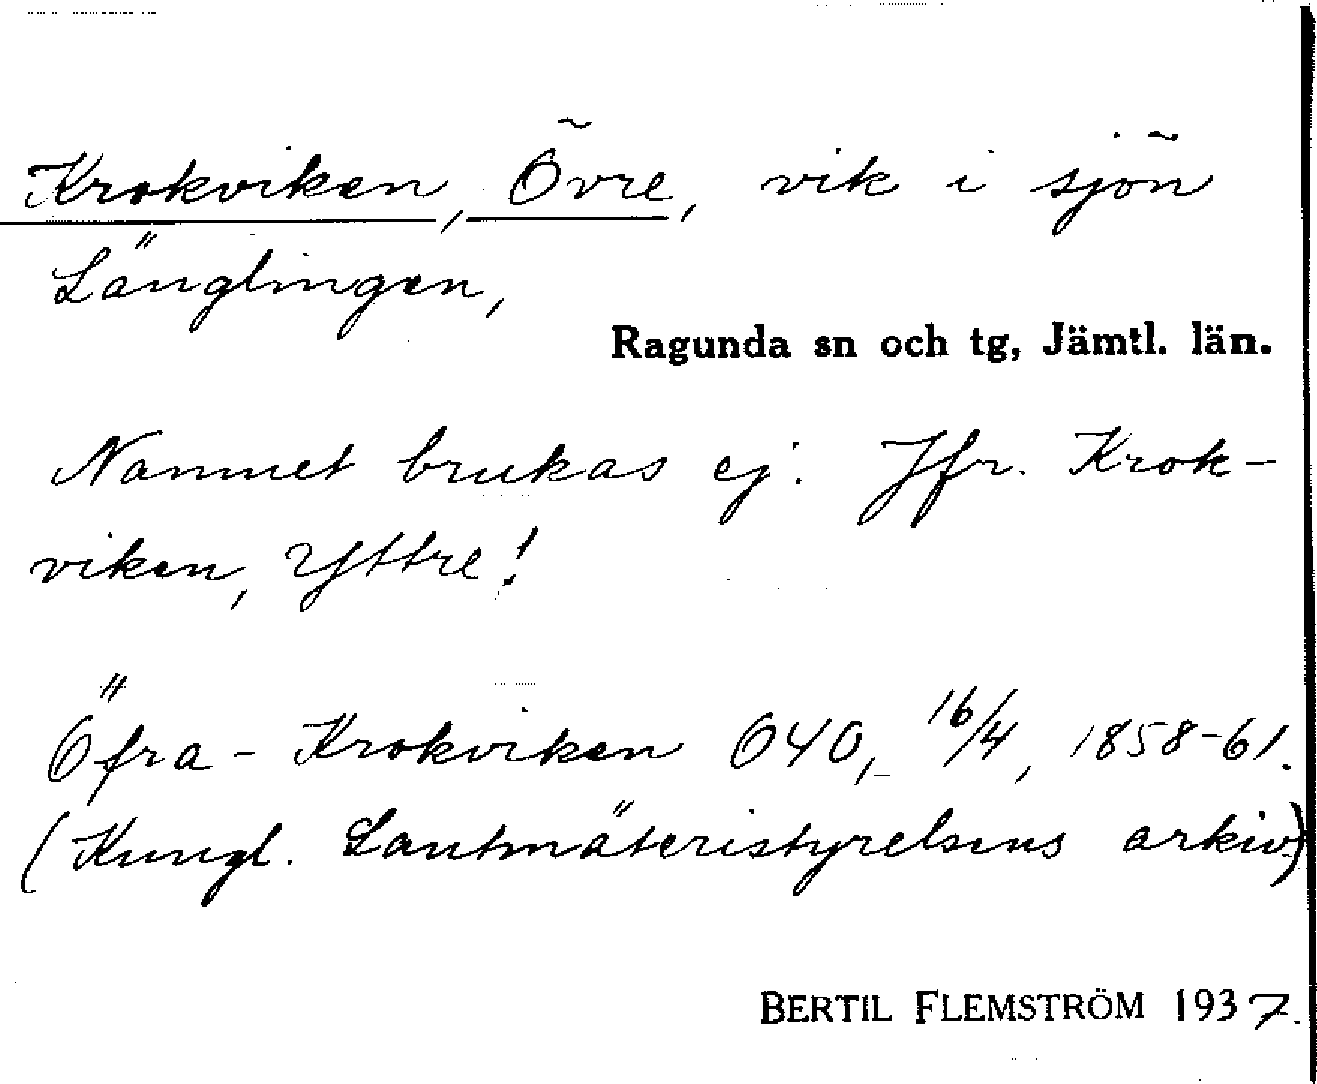 Krokviken, Övre, vik i sjön
Länglingen,
Ragunda sn och tg, Jämtl. län.
Namnet brukas ej. Jfr. Krok-
viken, Yttre!
Öfra - Krokviken 040, 16/4, 1858-61.
(Kungl. Lantmäteristyrelsens arkiv)
BERTIL FLEMSTRÖM 1937.